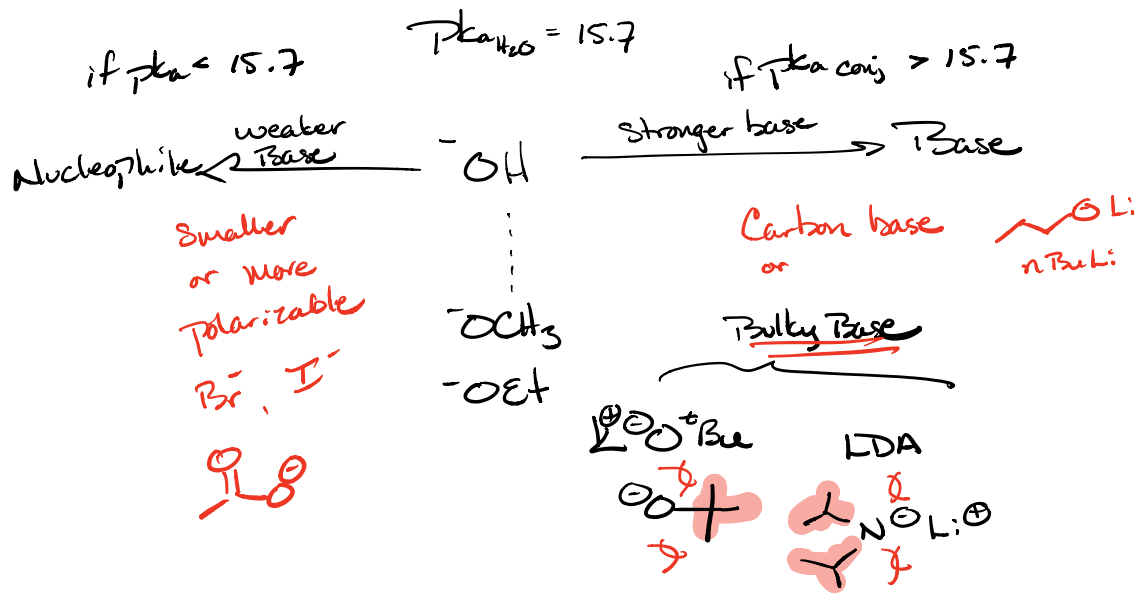 pKa H₂O = 15.7
if pka < 15.7
if pka conj > 15.7
Nucleophile
weaker
Base
⁻OH
stronger base
Base
Smaller
or more
polarizable
Br⁻, I⁻
O
O⊖
⁻OCH₃
⁻OEt
Carbon base
or
⊖ Li
nBuLi
Bulky Base
K⊕ ⊖OᵗBu
LDA
⊖O
N⊖ Li⊕